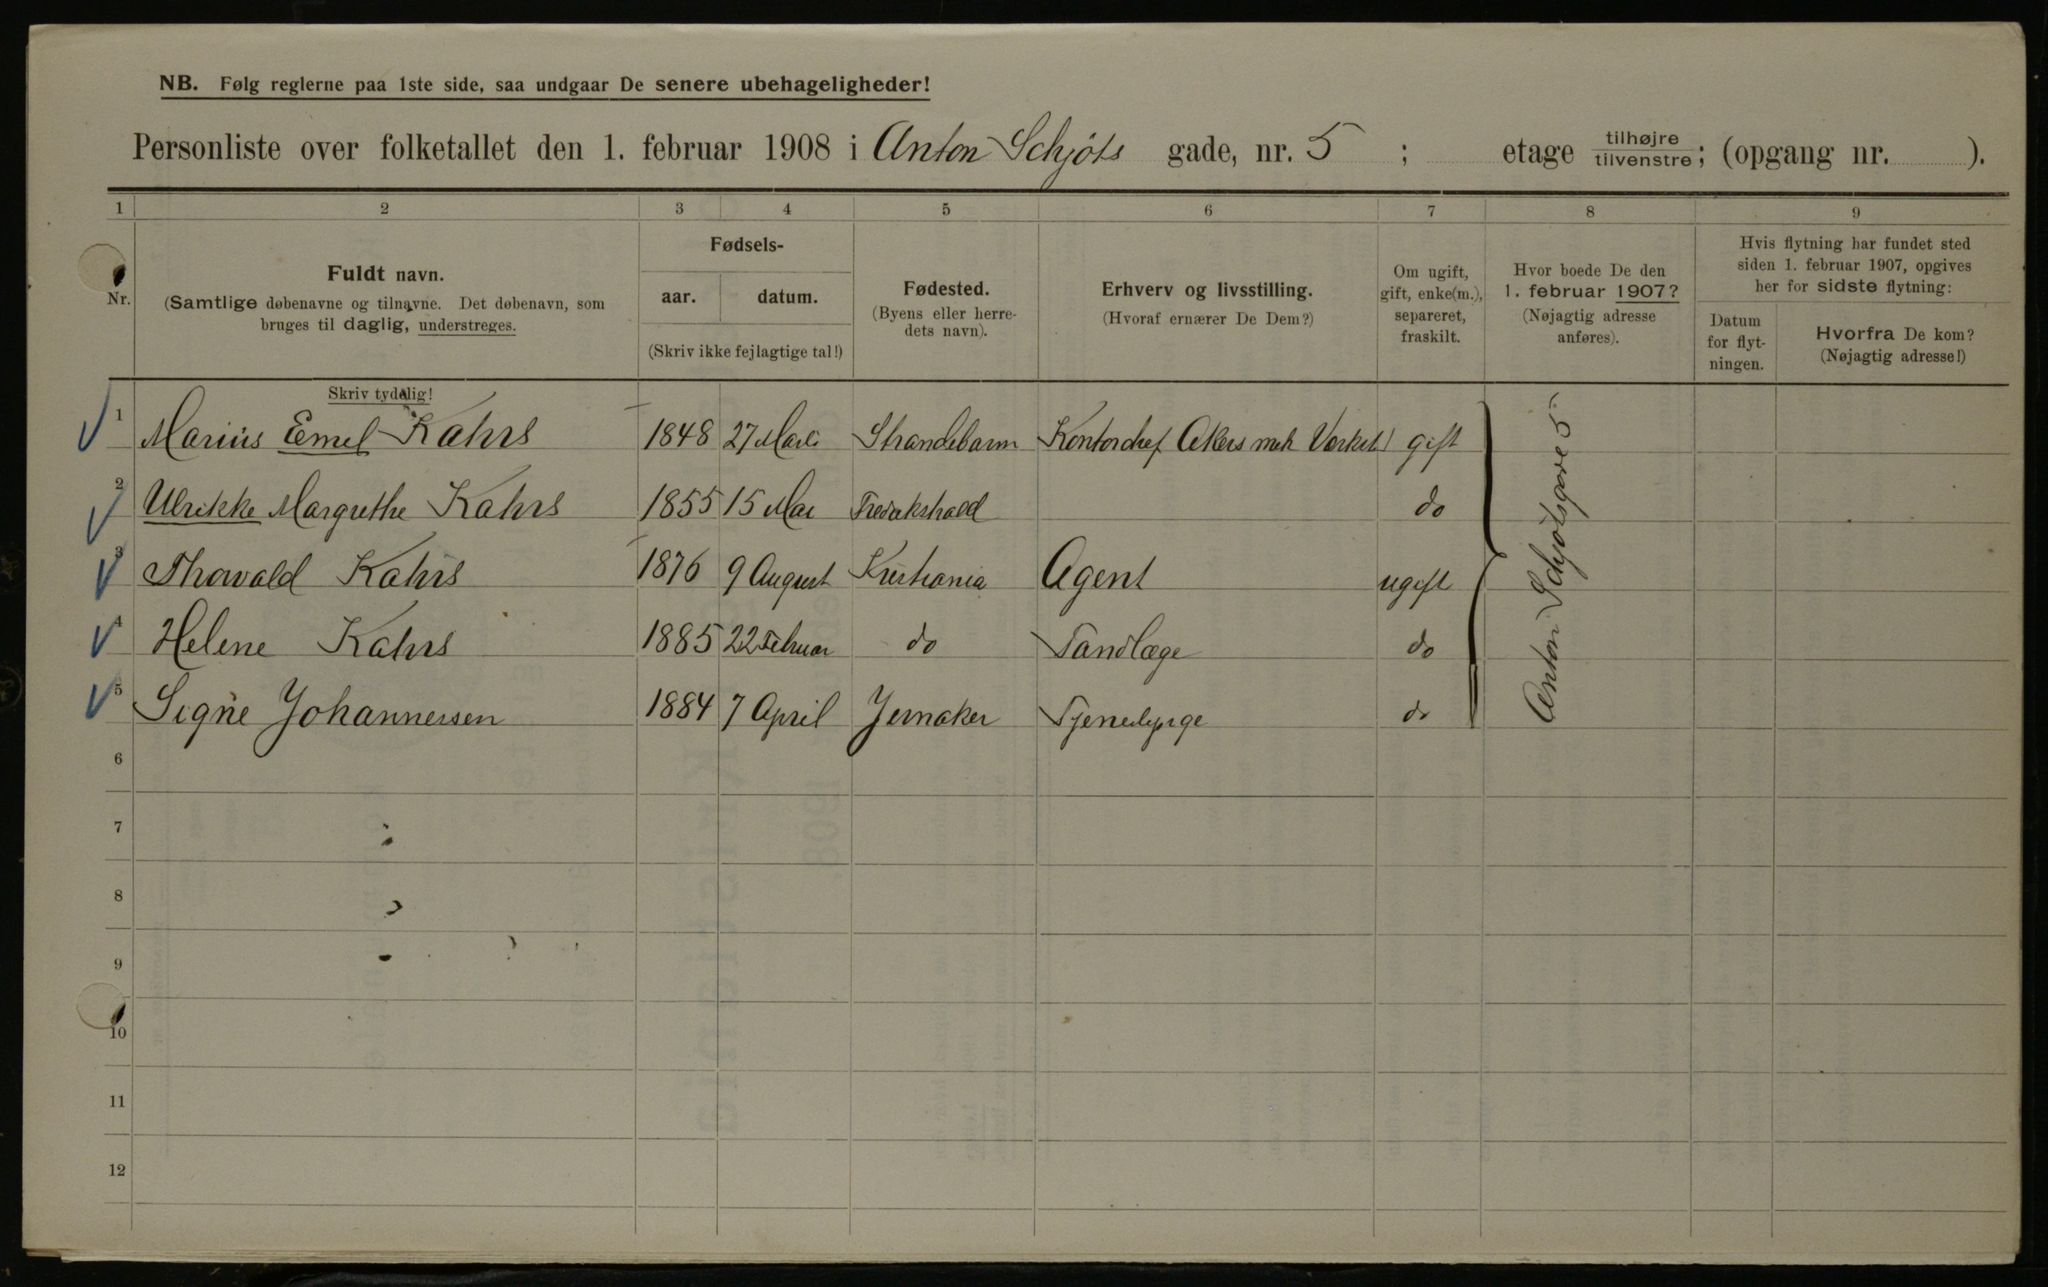 NB. Følg reglerne paa 1ste side, saa undgaar De senere ubehageligheder!
Personliste over folketallet den 1. februar 1908 i Anton Schjöts gade, nr. 5 ; etage tilhøjre tilvenstre; (opgang nr. ).
1 2 3 4 5 6 7 8 9
Nr.
Fuldt navn.
(Samtlige døbenavne og tilnavne. Det døbenavn, som
bruges til daglig, understreges.
Fødsels-
aar. datum.
(Skriv ikke fejlagtige tal!)
Fødested.
(Byens eller herre-
dets navn).
Erhverv og livsstilling.
(Hvoraf ernærer De Dem?)
Om ugift,
gift, enke(m.),
separeret,
fraskilt.
Hvor boede De den
1. februar 1907?
(Nøjagtig adresse
anføres).
Hvis flytning har fundet sted
siden 1. februar 1907, opgives
her for sidste flytning:
Datum
for flyt-
ningen.
Hvorfra De kom?
(Nøjagtig adresse!)
Skriv tydelig!
1 Marius Eemel Kahrs 1848 27 Marts Strandebarm Kontorchef Akers mek Værksted gift
2 Ulrikke Margrethe Kahrs 1855 15 Mai Fredrikshald do
3 Thorvald Kahrs 1876 9 August Kristiania Agent ugift
4 Helene Kahrs 1885 22 Februar do Tandlæge do
5 Signe Johannessen 1884 7 April Jevnaker Tjenestepige do
Anton Schjøtsgade 5
6
7
8
9
10
11
12